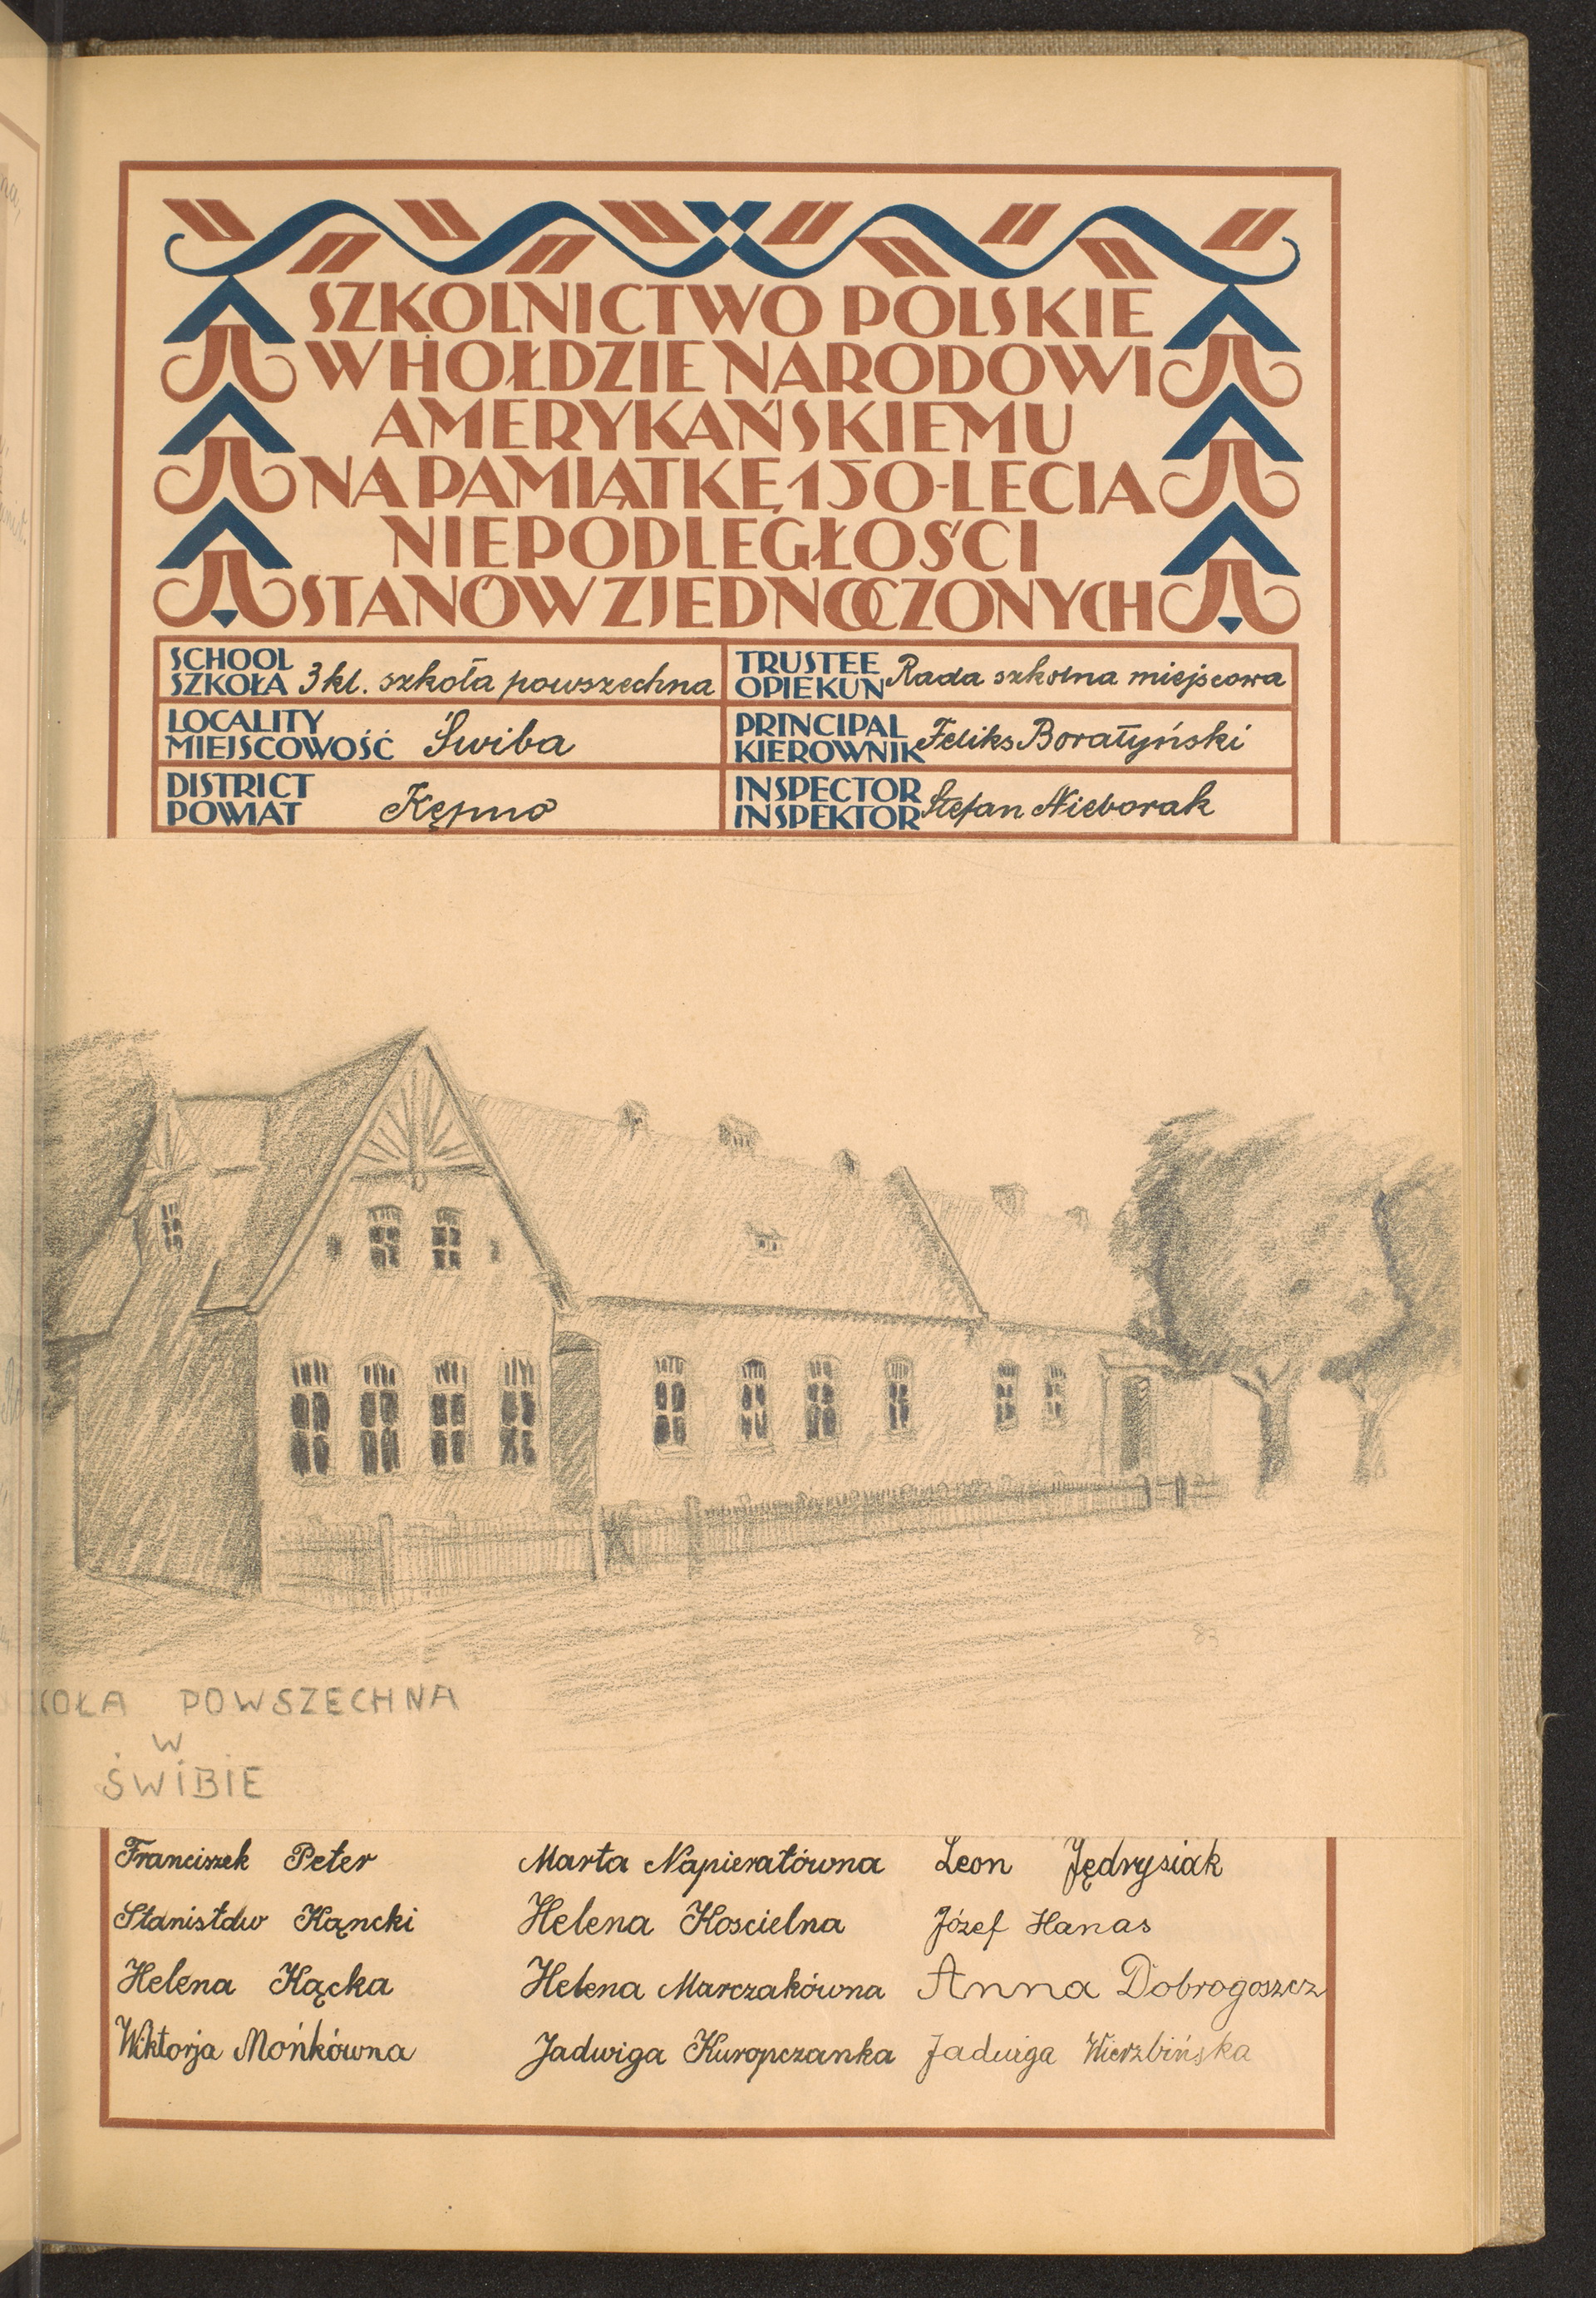 SZKOLNICTWO POLSKIE
W HOŁDZIE NARODOWI
AMERYKAŃSKIEMU
NA PAMIĄTKĘ 150-LECIA
NIEPODLEGŁOŚCI
STANÓW ZJEDNOCZONYCH
SCHOOL
SZKOŁA 3 kl. szkoła powszechna
TRUSTEE
OPIEKUN Rada szkolna miejscowa
LOCALITY
MIEJSCOWOŚĆ Świba
PRINCIPAL
KIEROWNIK Feliks Borałyński
DISTRICT
POWIAT Kępno
INSPECTOR
INSPEKTOR Stefan Nieborak
83
KOŁA POWSZECHNA
W
ŚWIBIE
Franciszek Peter
Stanisław Kącki
Helena Kącka
Wiktorja Mońkówna
Marta Napieratówna
Helena Koscielna
Helena Marczakówna
Jadwiga Kuropczanka
Leon Jędrysiak
Józef Hanas
Anna Dobrogoszcz
Jadwiga Wierzbińska